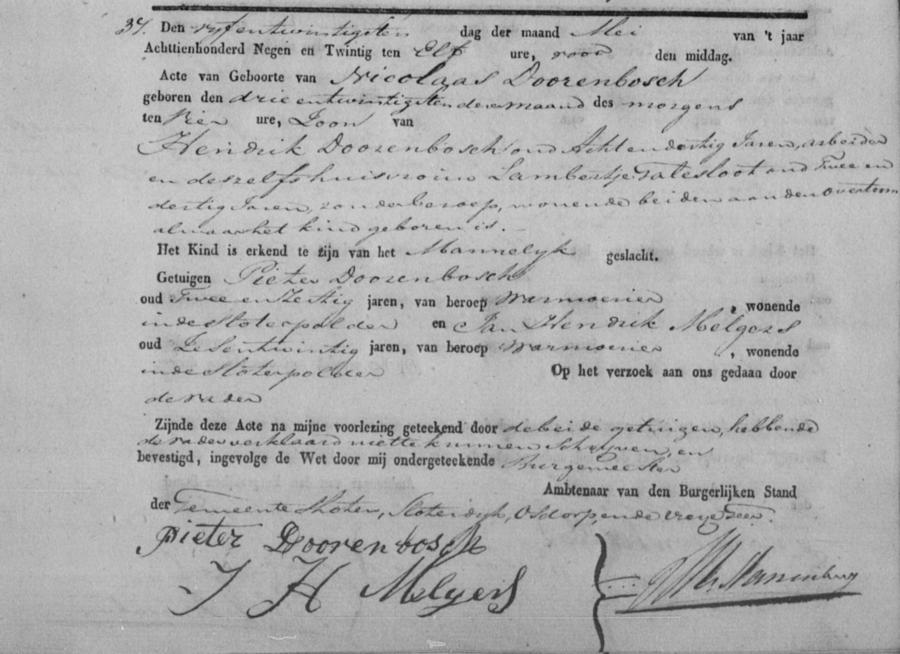 37. Den vyfentwintigsten dag der maand Mei van 't jaar
Achttienhonderd Negen en Twintig ten Elf ure, voor den middag.
Acte van Geboorte van Nicolaas Doorenbosch
geboren den drieentwintigsten dezer maand des morgens
ten Vier ure, Zoon van
Hendrik Doorenbosch oud Achtendertig Jaren, arbeider
en deszelfs huisvrouw Lambertje Tatesloot oud Twee en
dertig Jaren, zonder beroep, wonende beiden aan den Overtoom
alwaar het kind geboren is.
Het Kind is erkend te zijn van het Mannelyk geslacht.
Getuigen Pieter Doorenbosch
oud Twee en Zestig jaren, van beroep Warmoenier, wonende
in de Sloterpolder en Jan Hendrik Melgers
oud Zesentwintig jaren, van beroep Warmoenier, wonende
in de Sloterpolder Op het verzoek aan ons gedaan door
de vader
Zijnde deze Acte na mijne voorlezing geteekend door de beide getuigen, hebbende
de vader verklaard niet te kunnen schryven, en
bevestigd, ingevolge de Wet door mij ondergeteekende Burgemeester
Ambtenaar van den Burgerlijken Stand
der Gemeente Sloten, Sloterdyk, Osdorp, en de Vrye Geer.
Pieter Doorenbosch
J H Melgers